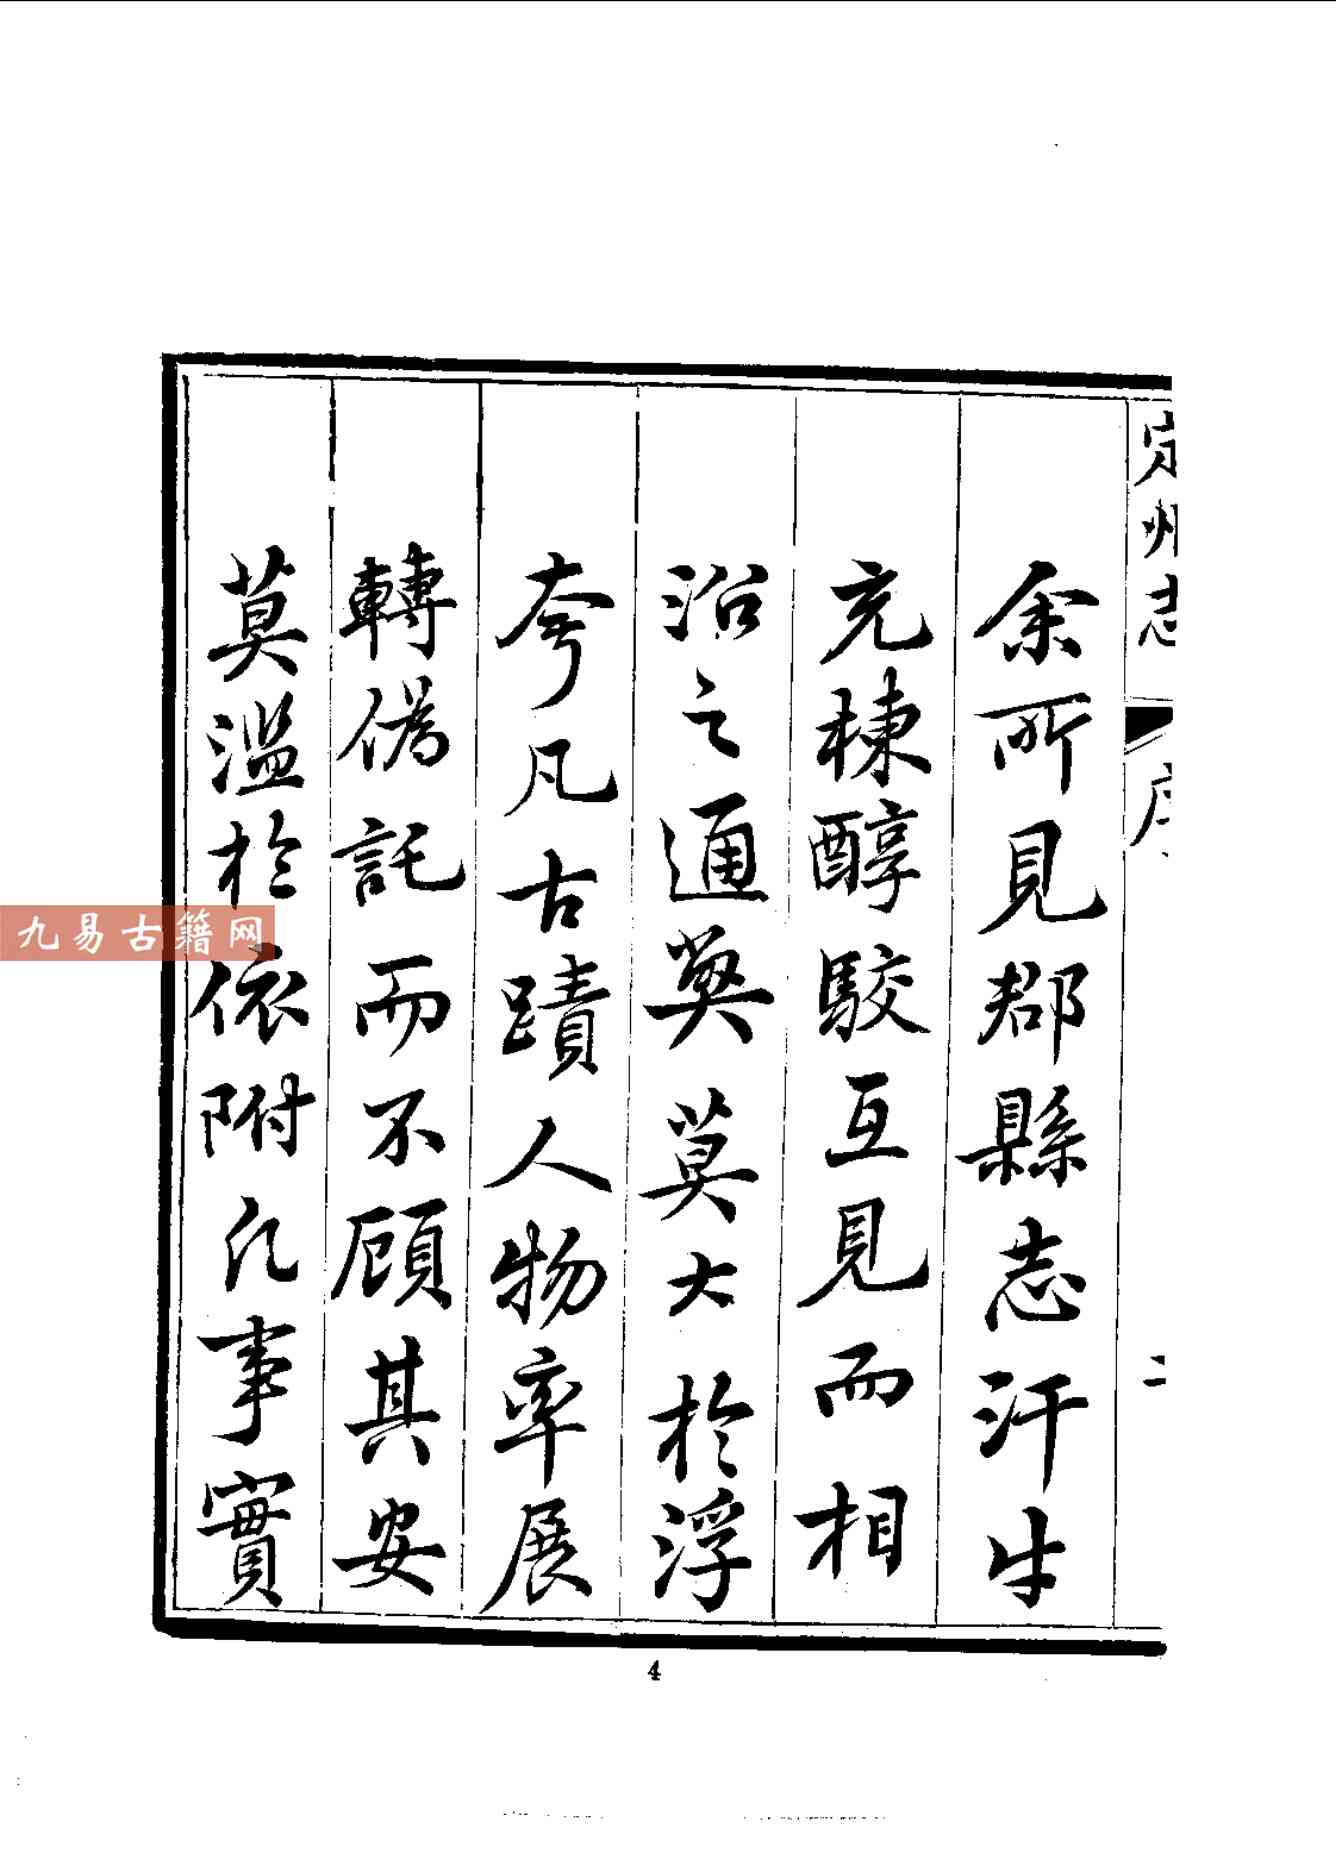 定州志
序
二
余所見郡縣志汗牛
充棟醇駁互見而相
沿之通獘莫大於浮
夸凡古蹟人物率展
轉僞託而不顧其安
莫濫於依附凡事實
4
九易古籍网